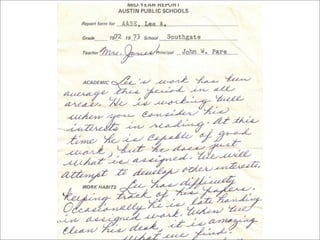 MID YEAR REPORT
AUSTIN PUBLIC SCHOOLS
Report form for AASE, Lee A.
Grade 1972 1973 School Southgate
Teacher Mrs. Jones Principal John W. Pare
ACADEMIC Lee's work has been
average this period in all
areas. He is working well
when you consider his
interests in reading. At this
time he is capable of good
work, but he does just
what is assigned. We will
attempt to develop other interests.
WORK HABITS Lee has difficulty
keeping track of his papers.
Occasionally he is late handing
in assigned work. When we
clean his desk, it is amazing
what we find.